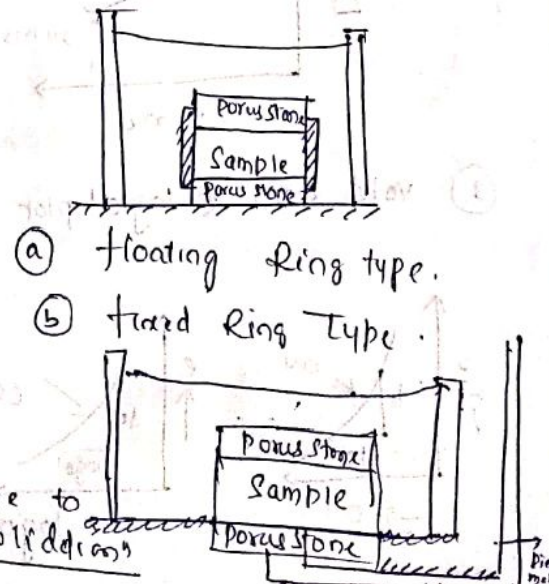 Porus stone
Sample
Porus stone
(a) floating Ring type.
(b) fixed Ring Type.
Porus Stone
Sample
Porus Stone
to